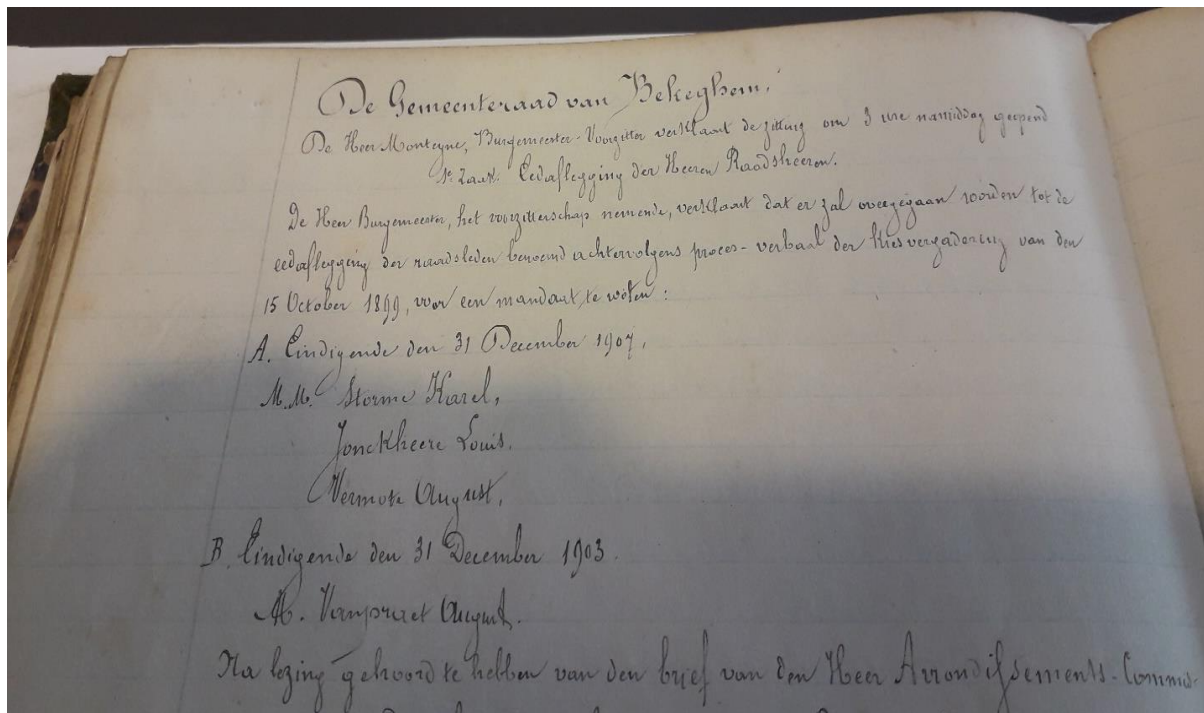 De Gemeenteraad van Bekeghem,
De Heer Monteyne, Burgemeester-Voorzitter verklaart de zitting om 3 ure namiddag geopend
1e Zaak. Eedaflegging der Heeren Raadsheeren.
De Heer Burgemeester, het voorzitterschap nemende, verklaart dat er zal overgegaan worden tot de
eedaflegging der raadsleden benoemd achtervolgens proces-verbaal der kiesvergadering van den
15 October 1899, voor een mandaat, te weten:
A. Eindigende den 31 December 1907,
M.M. Storme Karel,
Jonckheere Louis.
Vermote August,
B. Eindigende den 31 December 1903.
M. Vanpraet August.
Na lezing gehoord te hebben van den brief van den Heer Arrondissements-Commis-